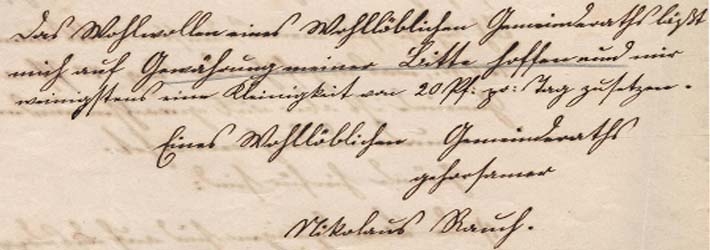 Das Wohlwollen eines Wohllöblichen Gemeinderaths läßt
mich auf Gewährung meiner Bitte hoffen und mir
wenigstens eine Kleinigkeit von 20 Pf: pr: Tag zusetzen.
Eines Wohllöblichen Gemeinderaths
gehorsamer
Nikolaus Rauch.